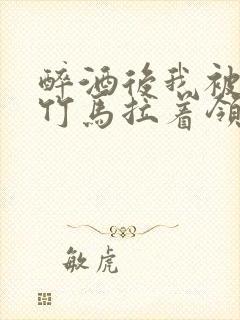 醉酒後我被
竹馬拉着領
敏虎